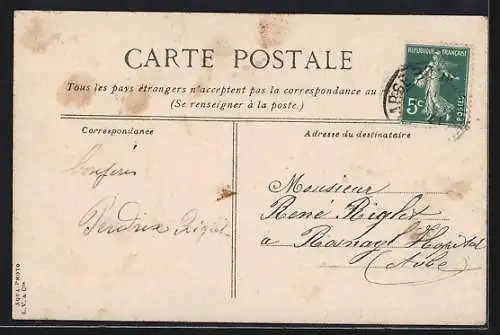 CARTE POSTALE
Tous les pays étrangers n'acceptent pas la correspondance au
(Se renseigner à la poste.)
Correspondance
Adresse du destinataire
RÉPUBLIQUE FRANÇAISE
5c
POSTES
Monsieur
René Riglet
à Rosnay l'Hôpital
(Aube)
AQUA-PHOTO
L.V. & Cie